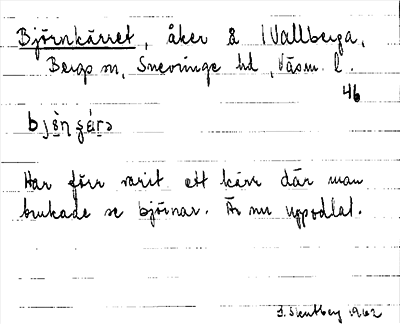 Björnkärret, åker å Vallberga,
Bergs sn, Snevringe hd, Väsm. l.
46
Har förr varit ett kärr där man
brukade se björnar. Är nu uppodlat.
1962